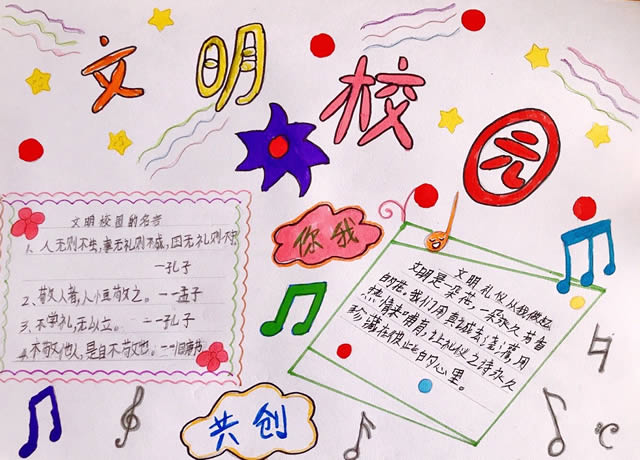 文明校园
文明校园的名言
1、人无则不生,事无礼则不成,国无礼则不宁
——孔子
2、敬人者,人恒敬之。——孟子
3、不学礼,无以立。——孔子
4、不敬他人,是自不敬也。——旧唐书
你我
共创
文明礼仪从我做起
文明是一朵花一朵永久芳香
的花 我们用真诚去灌溉,用
热情来哺育,让礼仪之持永久
珍藏在彼此的心里。